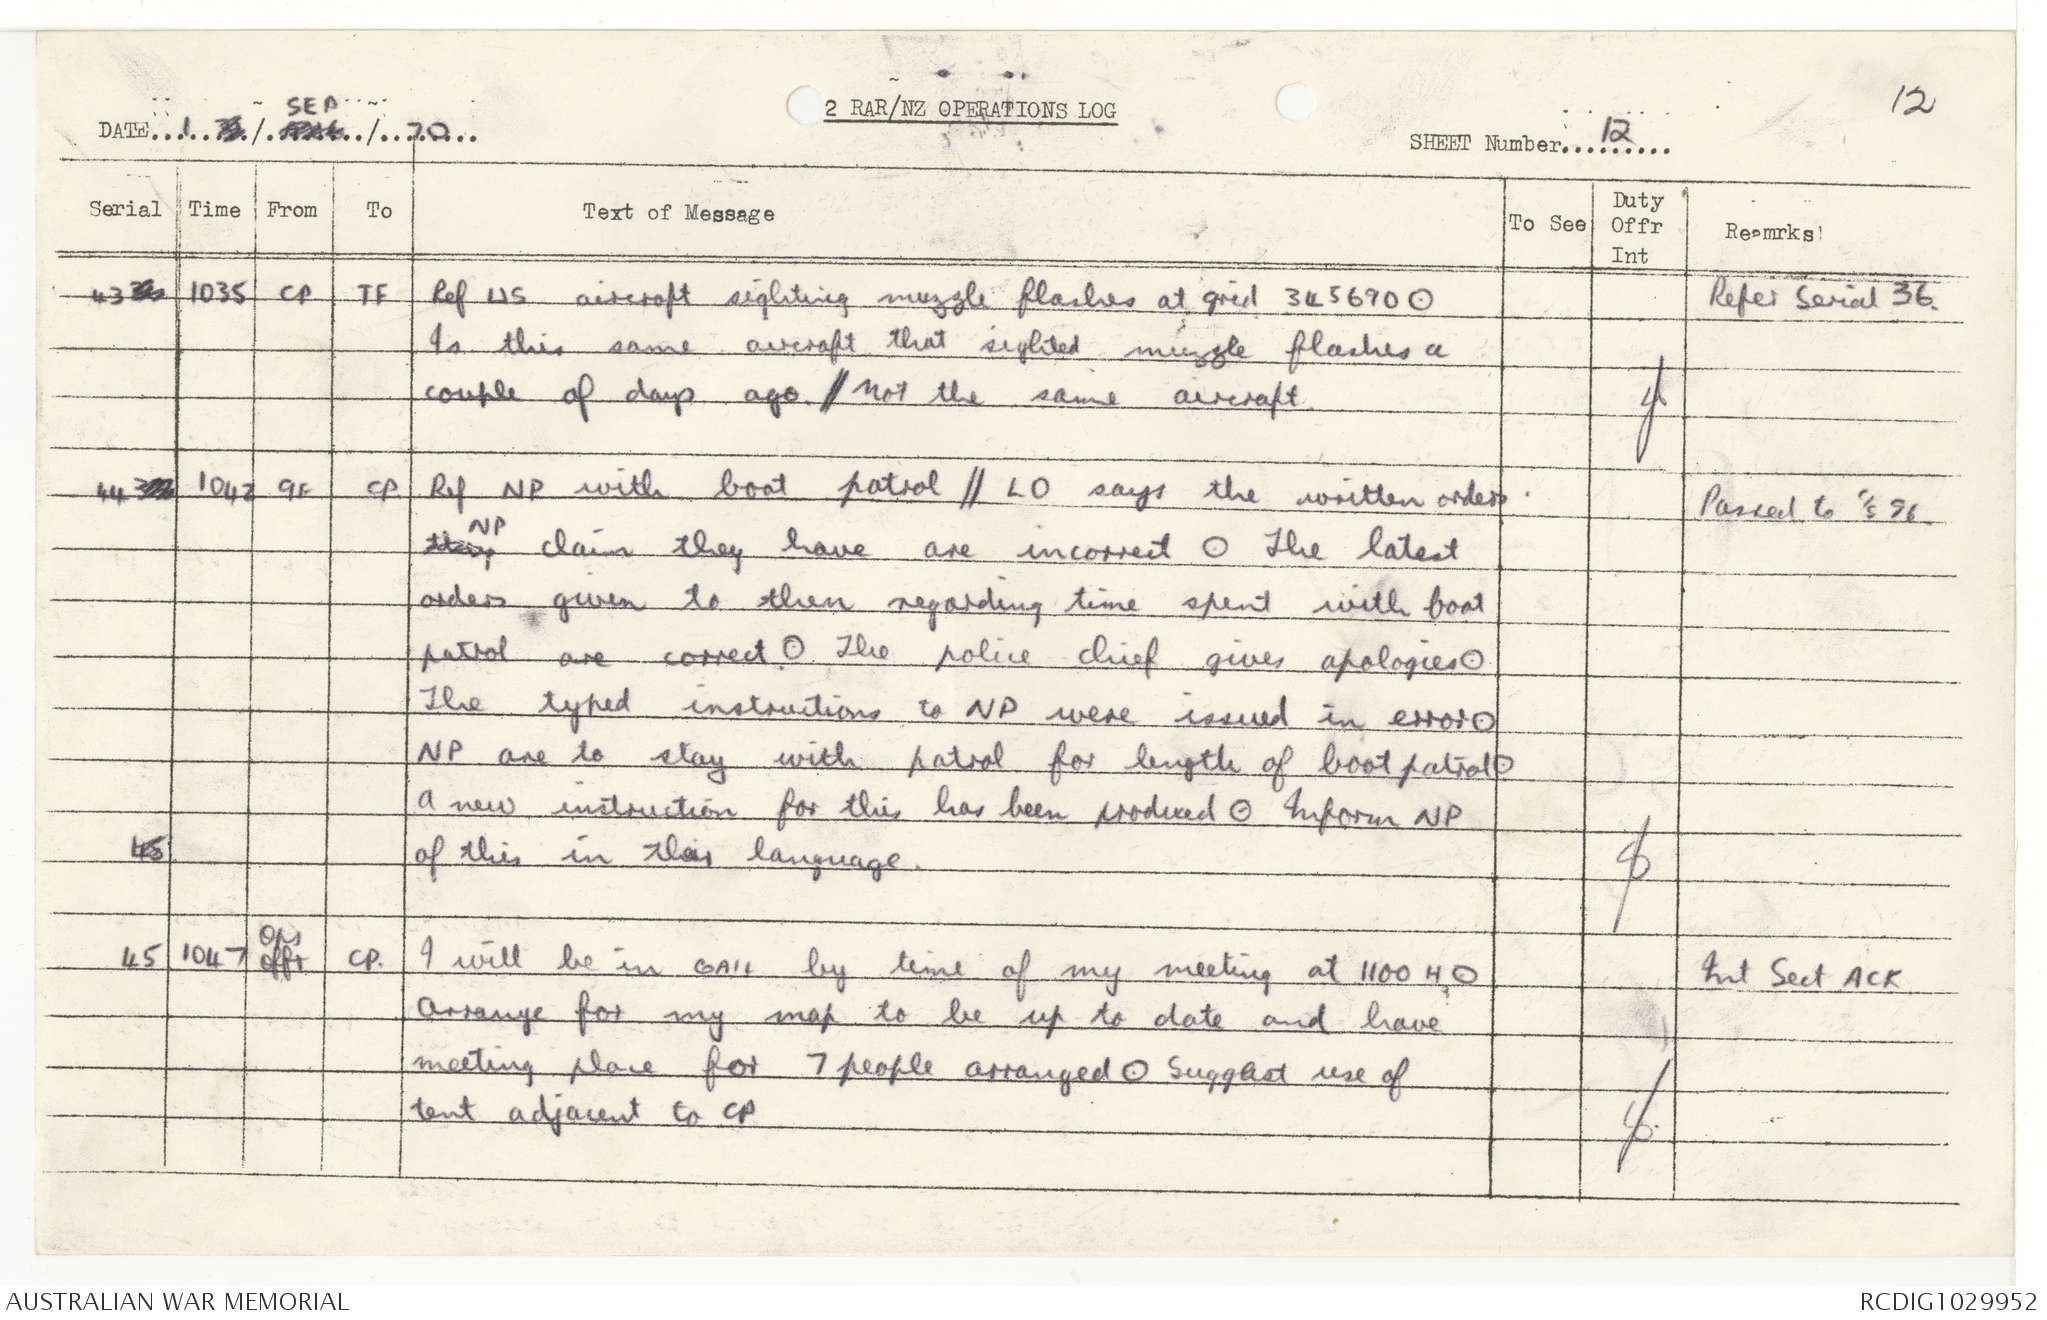 12
2 RAR/NZ OPERATIONS LOG
DATE 1 / SEP / 70
SHEET Number 12
Serial Time From To Text of Message To See Duty Offr Int Remarks
43 1035 CP TF Ref US aircraft sighting muzzle flashes at grid 345690 ⊙ Refer Serial 36.
Is this same aircraft that sighted muzzle flashes a
couple of days ago // Not the same aircraft.
44 1042 9F CP Ref NP with boat patrol // LO says the written orders Passed to
NP claim they have are incorrect ⊙ The latest
orders given to then regarding time spent with boat
patrol are correct ⊙ The police chief gives apologies ⊙
The typed instructions to NP were issued in error ⊙
NP are to stay with patrol for length of boat patrol ⊙
A new instruction for this has been produced ⊙ Inform NP
of this in their language.
45 1047 Ops Offr CP. I will be in GAIL by time of my meeting at 1100 H ⊙ Int Sect ACK
Arrange for my map to be up to date and have
meeting place for 7 people arranged ⊙ Suggest use of
tent adjacent to CP
AUSTRALIAN WAR MEMORIAL
RCDIG1029952